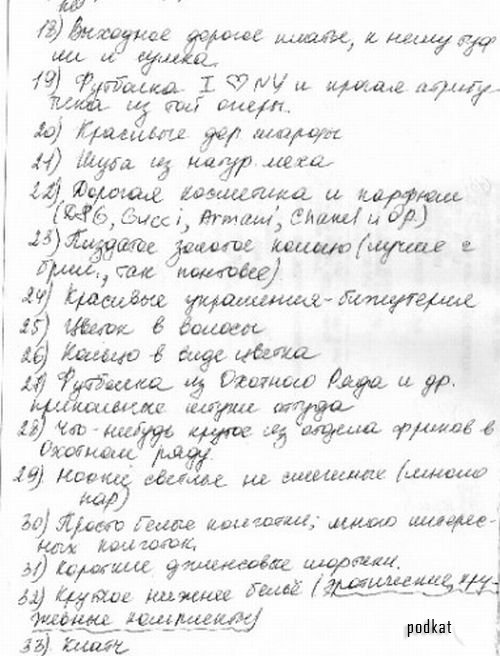 18) Выходное дорогое платье, к нему туф
ли и сумка.
19) Футболка I ♡ NY и прочая атрибу-
тика из той оперы.
20) Красивые дор. шарфы
21) Шуба из натур. меха
22) Дорогая косметика и парфюм
(D&G, Gucci, Armani, Chanel и др.)
23) Пиздатое золотое кольцо (лучше с
брил., так понтовее)
24) Красивые украшения-бижутерия
25) Цветок в волосы
26) Кольцо в виде цветка
27) Футболка из Охотного Ряда и др.
прикольные штуки оттуда
28) Что-нибудь крутое из отдела фриков в
Охотном ряду.
29) Носки светлые не смешные (много
пар)
30) Просто белые колготки; много интерес-
ных колготок.
31) Короткие джинсовые шортики.
32) Крутое нижнее бельё (эротические, кру-
жевные комплекты)
33) Клатч
podkat